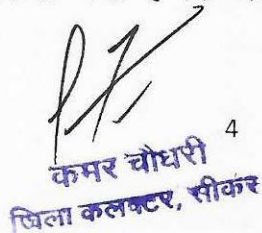 4
कमर चौधरी
जिला कलक्टर, सीकर